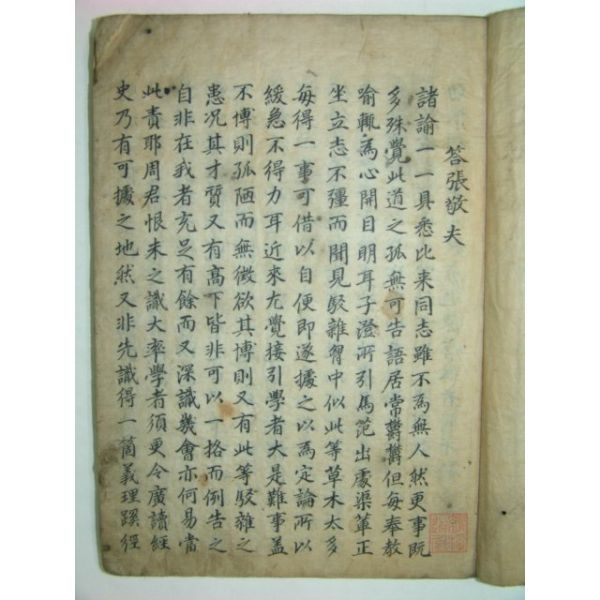 答張敬夫
諸諭一一具悉比来同志雖不爲無人然更事既
多殊覺此道之孤無可告語居常欝欝但每奉教
喻輒爲心開目明耳子澄所引馬范出處渠輩正
坐立志不彊而聞見駁雜胷中似此等草木太多
每得一事可借以自便即遂據之以爲定論所以
緩急不得力耳近來尤覺接引學者大是難事盖
不博則孤陋而無徵欲其博則又有此等駁雜之
患况其才質又有高下皆非可以一格而例告之
自非在我者充足有餘而又深識幾會亦何易當
此責耶周君恨未之識大率學者須更令廣讀經
史乃有可據之地然又非先識得一箇義理蹊徑